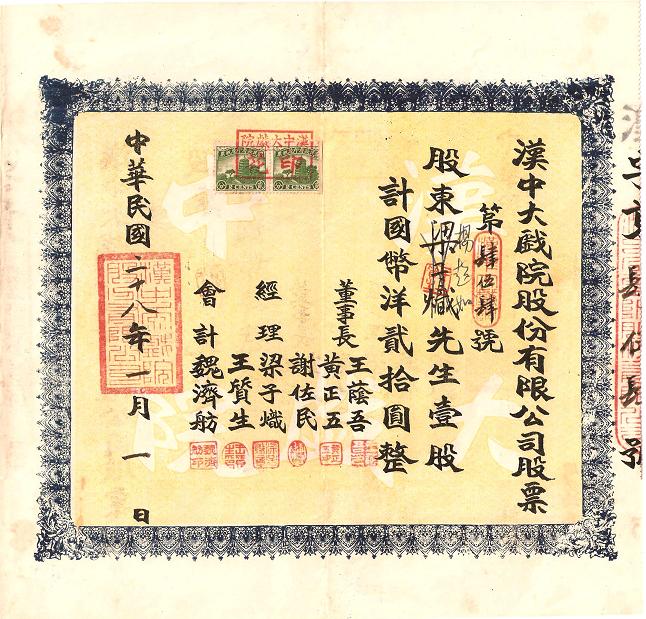 漢中大戲院股份有限公司股票
第肆伍肆號
股東梁子熾先生壹股
楊超如
計國幣洋貳拾圓整
董事長 王蔭吾
黃正五
謝佐民
經理 梁子熾
王質生
會計 魏濟舫
中華民國二十八年一月一日
漢中大戲院
2 CENTS
2 CENTS
漢中大戲院